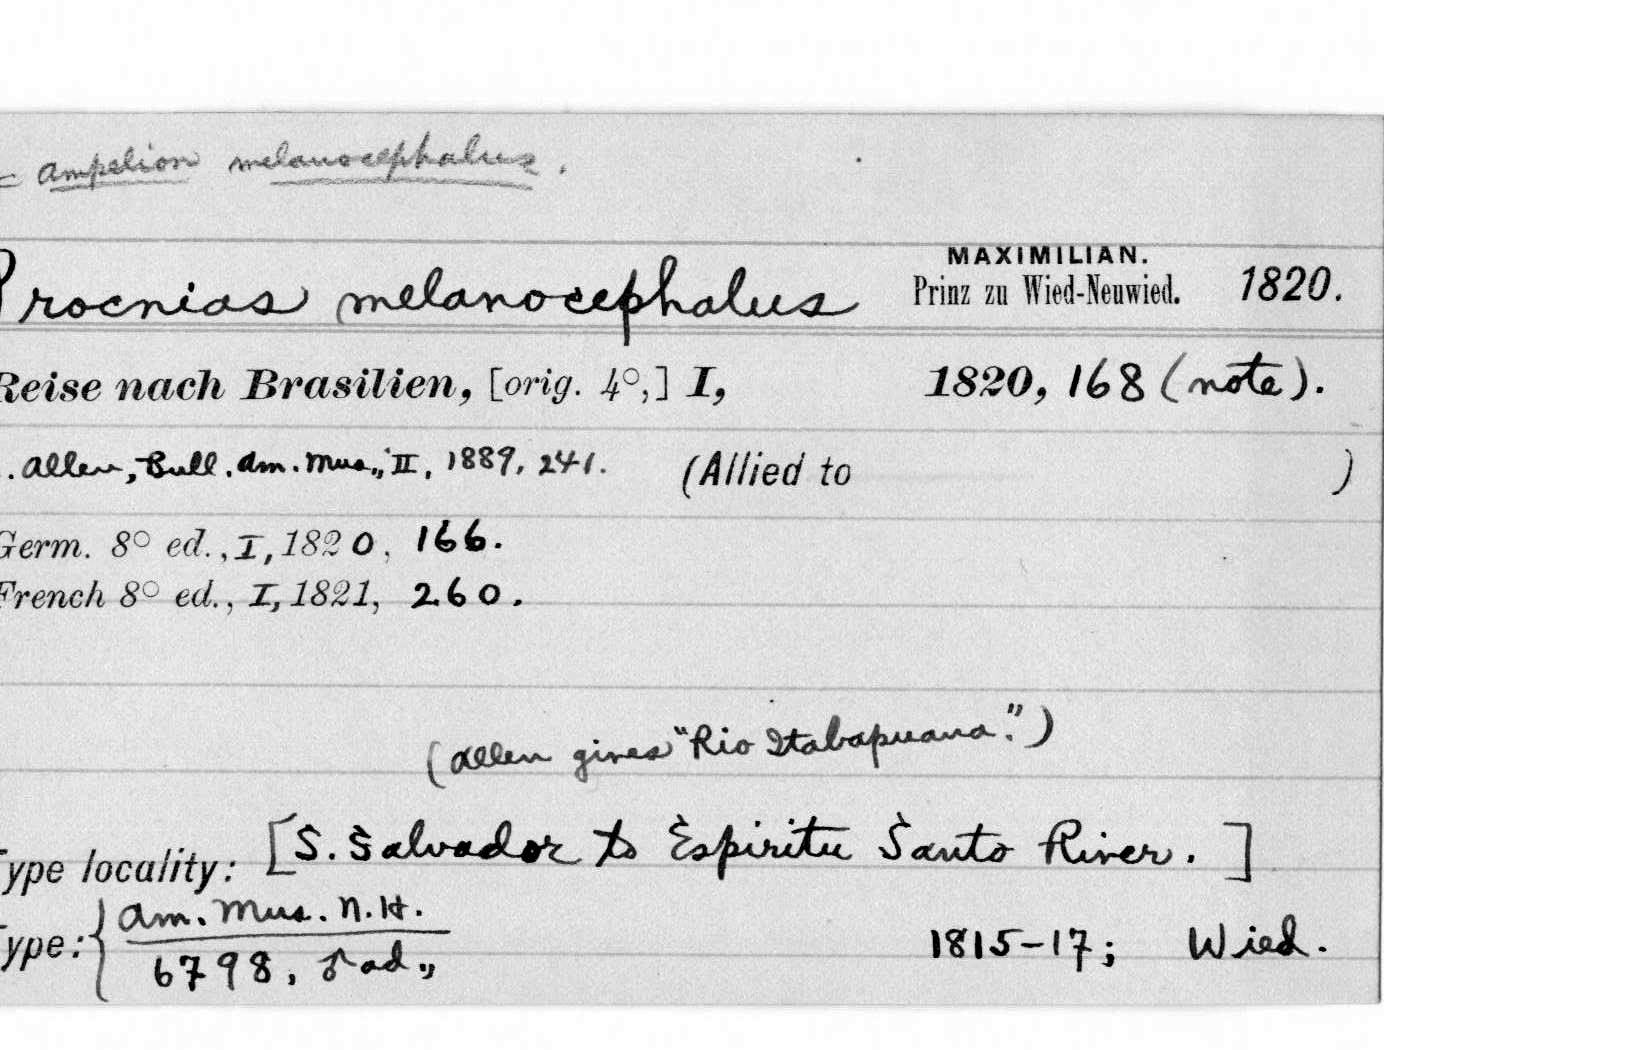 = Ampelion melanocephalus.
MAXIMILIAN.
Procnias melanocephalus Prinz zu Wied-Neuwied. 1820.
Reise nach Brasilien, [orig. 4°,] I, 1820, 168 (note).
. Allen, Bull. Am. Mus., II, 1889, 241. (Allied to )
Germ. 8° ed., I, 1820, 166.
French 8° ed., I, 1821, 260.
(Allen gives "Rio Itabapuana.")
Type locality: [S. Salvador to Espiritu Santo River.]
Am. Mus. N.H.
Type: 6798, ♂ ad., 1815-17; Wied.